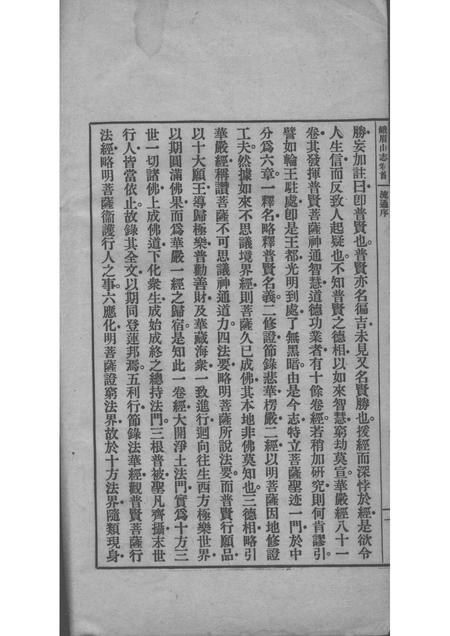 峨眉山志卷首　流通序
勝妄加註曰卽普賢也普賢亦名徧吉未見又名賢勝也援經而深悖於經是欲令
人生信而反致人起疑也不知普賢之德相以如來智慧窮劫莫宣華嚴經八十一
卷其發揮普賢菩薩神通智慧道德功業者有十餘卷經若稍加研究則何肯謬引
譬如輪王駐處卽是王都光明到處了無黑暗由是今志特立菩薩聖迹一門於中
分爲六章一釋名略釋普賢名義二修證節錄悲華楞嚴二經以明菩薩因地修證
工夫然據如來不思議境界經則菩薩久已成佛其本地非佛莫知也三德相略引
華嚴經稱讚菩薩不可思議神通道力四法要略明菩薩所說法要而普賢行願品
以十大願王導歸極樂普勸善財及華藏海衆一致進行迴向往生西方極樂世界
以期圓滿佛果而爲華嚴一經之歸宿是知此一卷經大開淨土法門實爲十方三
世一切諸佛上成佛道下化衆生成始成終之總持法門三根普被聖凡齊攝末世
行人皆當依止故錄其全文以期同登蓮邦焉五利行節錄法華經觀普賢菩薩行
法經略明菩薩衞護行人之事六應化明菩薩證窮法界故於十方法界隨類現身